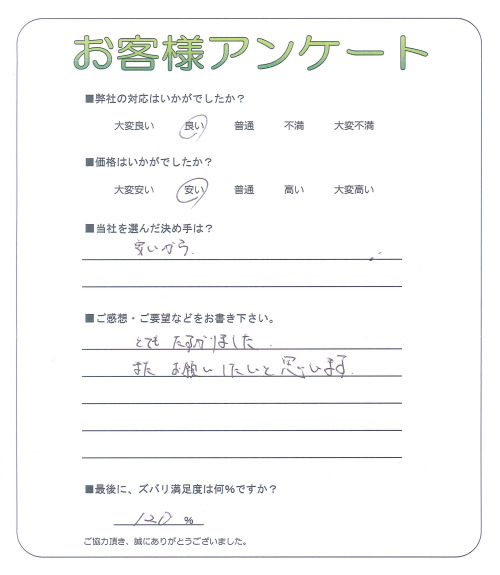 お客様アンケート
■弊社の対応はいかがでしたか？
大変良い 良い 普通 不満 大変不満
■価格はいかがでしたか？
大変安い 安い 普通 高い 大変高い
■当社を選んだ決め手は？
安いから.
■ご感想・ご要望などをお書き下さい。
とても たすかりました.
また お願いしたいと思います.
■最後に、ズバリ満足度は何%ですか？
120 %
ご協力頂き、誠にありがとうございました。